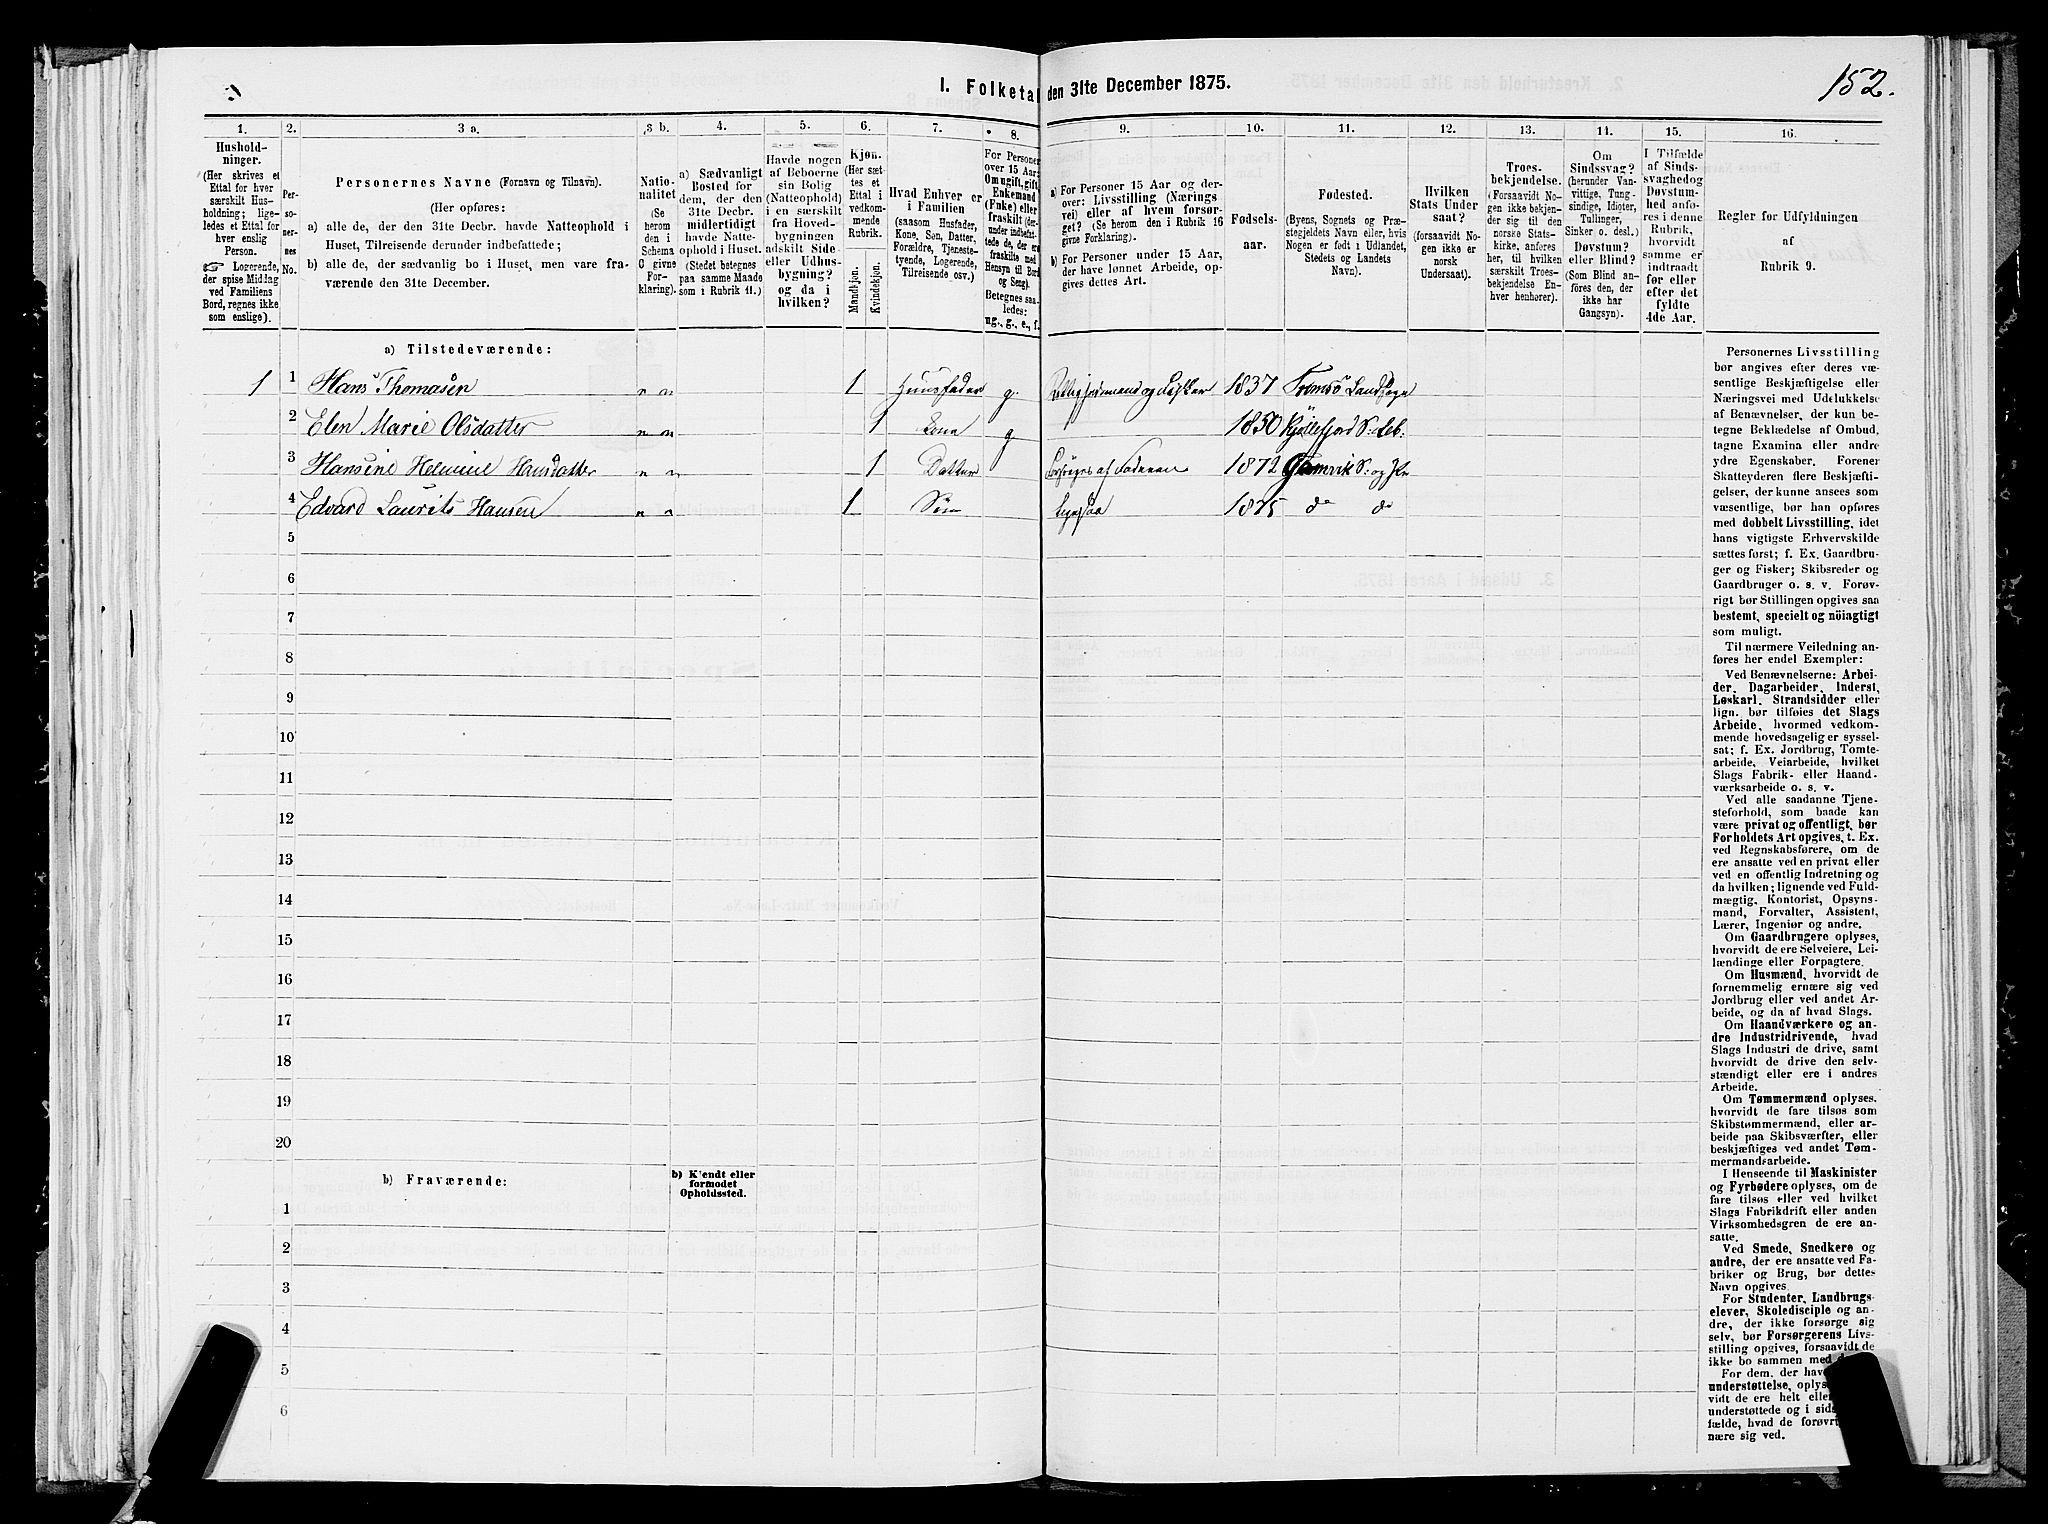 I. Folketal den 31te December 1875.
152.
1.
Hushold-
ninger.
(Her skrives et
Ettal for hver
særskilt Hus-
holdning; lige-
ledes et Ettal for
hver enslig
Person.
☞ Logerende,
der spise Middag
ved Familiens
Bord, regnes ikke
som enslige).
2.
Per-
so-
ner-
nes
No.
3 a.
Personernes Navne (Fornavn og Tilnavn).
(Her opføres:
a) alle de, der den 31te Decbr. havde Natteophold i
Huset, Tilreisende derunder indbefattede;
b) alle de, der sædvanlig bo i Huset, men vare fra-
værende den 31te December.
3 b.
Natio-
nalitet
(Se
herom
den i
Schema
C givne
For-
klaring).
4.
a) Sædvanligt
Bosted for
dem, der den
31te Decbr.
midlertidigt
havde Natte-
ophold i Huset.
(Stedet betegnes
paa samme Maade
som i Rubrik 11.)
5.
Havde nogen
af Beboerne
sin Bolig
(Natteophold)
i en særskilt
fra Hoved-
bygningen
adskilt Side-
eller Udhus-
bygning?
og da i
hvilken?
6.
Kjøn.
(Her sæt-
tes et
Ettal i
vedkom-
mende
Rubrik.
Mandkjøn.
Kvindekjøn.
7.
Hvad Enhver er
i Familien
(saasom Husfader,
Kone, Søn, Datter,
Forældre, Tjeneste-
tyende, Logerende,
Tilreisende osv.)
8.
For Personer
over 15 Aar:
Om ugift, gift,
Enkemand
(Enke) eller
fraskilt (der-
under indbefat-
tede de, der ere
fraskilte med
Hensyn til Bord
og Seng).
Betegnes saa-
ledes:
ug., g., e., f.
9.
a) For Personer 15 Aar og der-
over: Livsstilling (Nærings-
vei) eller af hvem forsør-
get? (Se herom den i Rubrik 16
givne Forklaring).
b) For Personer under 15 Aar,
der have lønnet Arbeide, op-
gives dettes Art.
10.
Fødsels-
aar.
11.
Fødested.
(Byens, Sognets og Præ-
stegjeldets Navn eller, hvis
Nogen er født i Udlandet,
Stedets og Landets
Navn).
12.
Hvilken
Stats Under
saat?
(forsaavidt No-
gen ikke er
norsk
Undersaat).
13.
Troes-
bekjendelse.
(Forsaavidt No-
gen ikke bekjen-
der sig til den
norske Stats-
kirke, anføres
her, til hvilken
særskilt Troes-
bekjendelse En-
hver henhører).
14.
Om
Sindssvag?
(herunder Van-
vittige, Tung-
sindige, Idioter,
Tullinger,
Sinker o. desl.)
Døvstum?
eller Blind?
(Som Blind an-
føres den, der
ikke har
Gangsyn).
15.
I Tilfælde
af Sinds-
svaghed og
Døvstum-
hed anfø-
res i denne
Rubrik,
hvorvidt
samme er
indtraadt
før eller
efter det
fyldte
4de Aar.
16.
Regler for Udfyldningen
af
Rubrik 9.
a) Tilstedeværende:
1 1 Hans Thomasen n n 1 Huusfader g. og Fisker 1837 Tromsö Landsogn
2 Elen Marie Olsdatter n n 1 Kone g 1850 Kjöllefjord S. Leb.
3 Hansine Helmine Hansdatter n n 1 Datter Forsörges af Faderen 1872 Gamvik S. og
4 Edvard Laurits Hansen n n 1 Sön Ligesaa 1875 do do
5
6
7
8
9
10
11
12
13
14
15
16
17
18
19
20
b) Fraværende:
b) Kjendt eller
formodet
Opholdssted.
1
2
3
4
5
6
Personernes Livsstilling
bør angives efter deres væ-
sentlige Beskjæftigelse eller
Næringsvei med Udelukkelse
af Benævnelser, der kun be-
tegne Beklædelse af Ombud,
tagne Examina eller andre
ydre Egenskaber. Forener
Skatteyderen flere Beskjæfti-
gelser, der kunne ansees som
væsentlige, bør han opføres
med dobbelt Livsstilling, idet
hans vigtigste Erhvervskilde
sættes først; f. Ex. Gaardbru-
ger og Fisker; Skibsreder og
Gaardbruger o. s. v. Forøv-
rigt bør Stillingen opgives saa
bestemt, specielt og nöiagtigt
som muligt.
Til nærmere Veiledning an-
føres her endel Exempler:
Ved Benævnelserne: Arbei-
der, Dagarbeider, Inderst,
Løskarl, Strandsidder eller
lign. bør tilføies det Slags
Arbeide, hvormed vedkom-
mende hovedsagelig er syssel-
sat; f. Ex. Jordbrug, Tomte-
arbeide, Veiarbeide, hvilket
Slags Fabrik- eller Haand-
værksarbeide o. s. v.
Ved alle saadanne Tjene-
steforhold, som baade kan
være privat og offentligt, bør
Forholdets Art opgives, t. Ex.
ved Regnskabsførere, om de
ere ansatte ved en privat eller
ved en offentlig Indretning og
da hvilken; lignende ved Fuld-
mægtig, Kontorist, Opsyns-
mand, Forvalter, Assistent,
Lærer, Ingeniør og andre.
Om Gaardbrugere oplyses,
hvorvidt de ere Selveiere, Lei-
lændinge eller Forpagtere.
Om Husmænd, hvorvidt de
fornemmelig ernære sig ved
Jordbrug eller ved andet Ar-
beide, og da af hvad Slags.
Om Haandværkere og an-
dre Industridrivende, hvad
Slags Industri de drive, samt
hvorvidt de drive den selv-
stændigt eller ere i andres
Arbeide.
Om Tømmermænd oplyses,
hvorvidt de fare tilsøs som
Skibstømmermænd, eller ar-
beide paa Skibsværfter, eller
beskjæftiges ved andet Tøm-
mermandsarbeide.
I Henseende til Maskinister
og Fyrbødere oplyses, om de
fare tilsøs eller ved hvilket
Slags Fabrikdrift eller anden
Virksomhedsgren de ere an-
satte.
Ved Smede, Snedkere og
andre, der ere ansatte ved Fa-
briker og Brug, bør dettes
Navn opgives.
For Studenter, Landbrugs-
elever, Skoledisciple og an-
dre, der ikke forsørge sig
selv, bør Forsørgerens Livs-
stilling opgives, forsaavidt de
ikke bo sammen med
For dem, der have
understøttelse,
vidt de ere helt
understøttede og i
fælde, hvad de
nære sig ved.